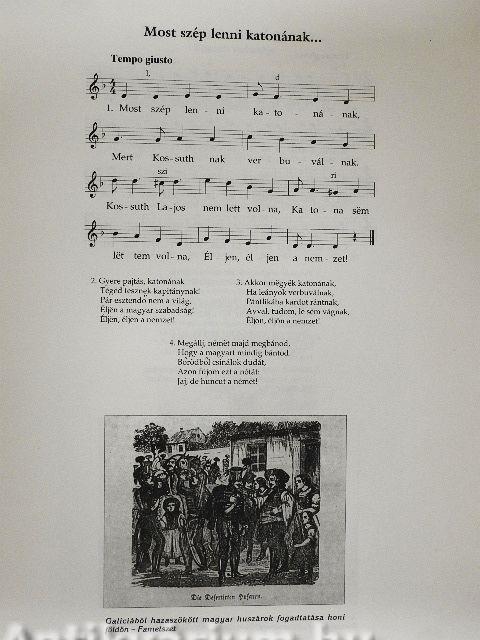 Most szép lenni katonának...
Tempo giusto
l,
d
1. Most szép len - ni ka - to - ná - nak,
Mert Kos - suth nak ver bu - vál - nak.
szi
ri
Kos - suth La - jos nem lett vol - na, Ka to - na sëm
lët tem vol - na, Él jen, él jen a nem - zet!
2. Gyere pajtás, katonának
Téged tesznek kapitánynak!
Pár esztendő nem a világ,
Éljen a magyar szabadság!
Éljen, éljen a nemzet!
3. Akkor mëgyëk katonának,
Ha leányok verbuválnak,
Pántlikába kardot rántnak,
Avval, tudom, le sëm vágnak,
Éljen, éljën a nemzet!
4. Megállj, német majd megbánod,
Hogy a magyart mindig bántod.
Bőrödből csinálok dudát,
Azon fújom ezt a nótát:
Jaj, de huncut a német!
Die Desertirten Husaren.
Galíciából hazaszökött magyar huszárok fogadtatása honi
földön – Fametszet